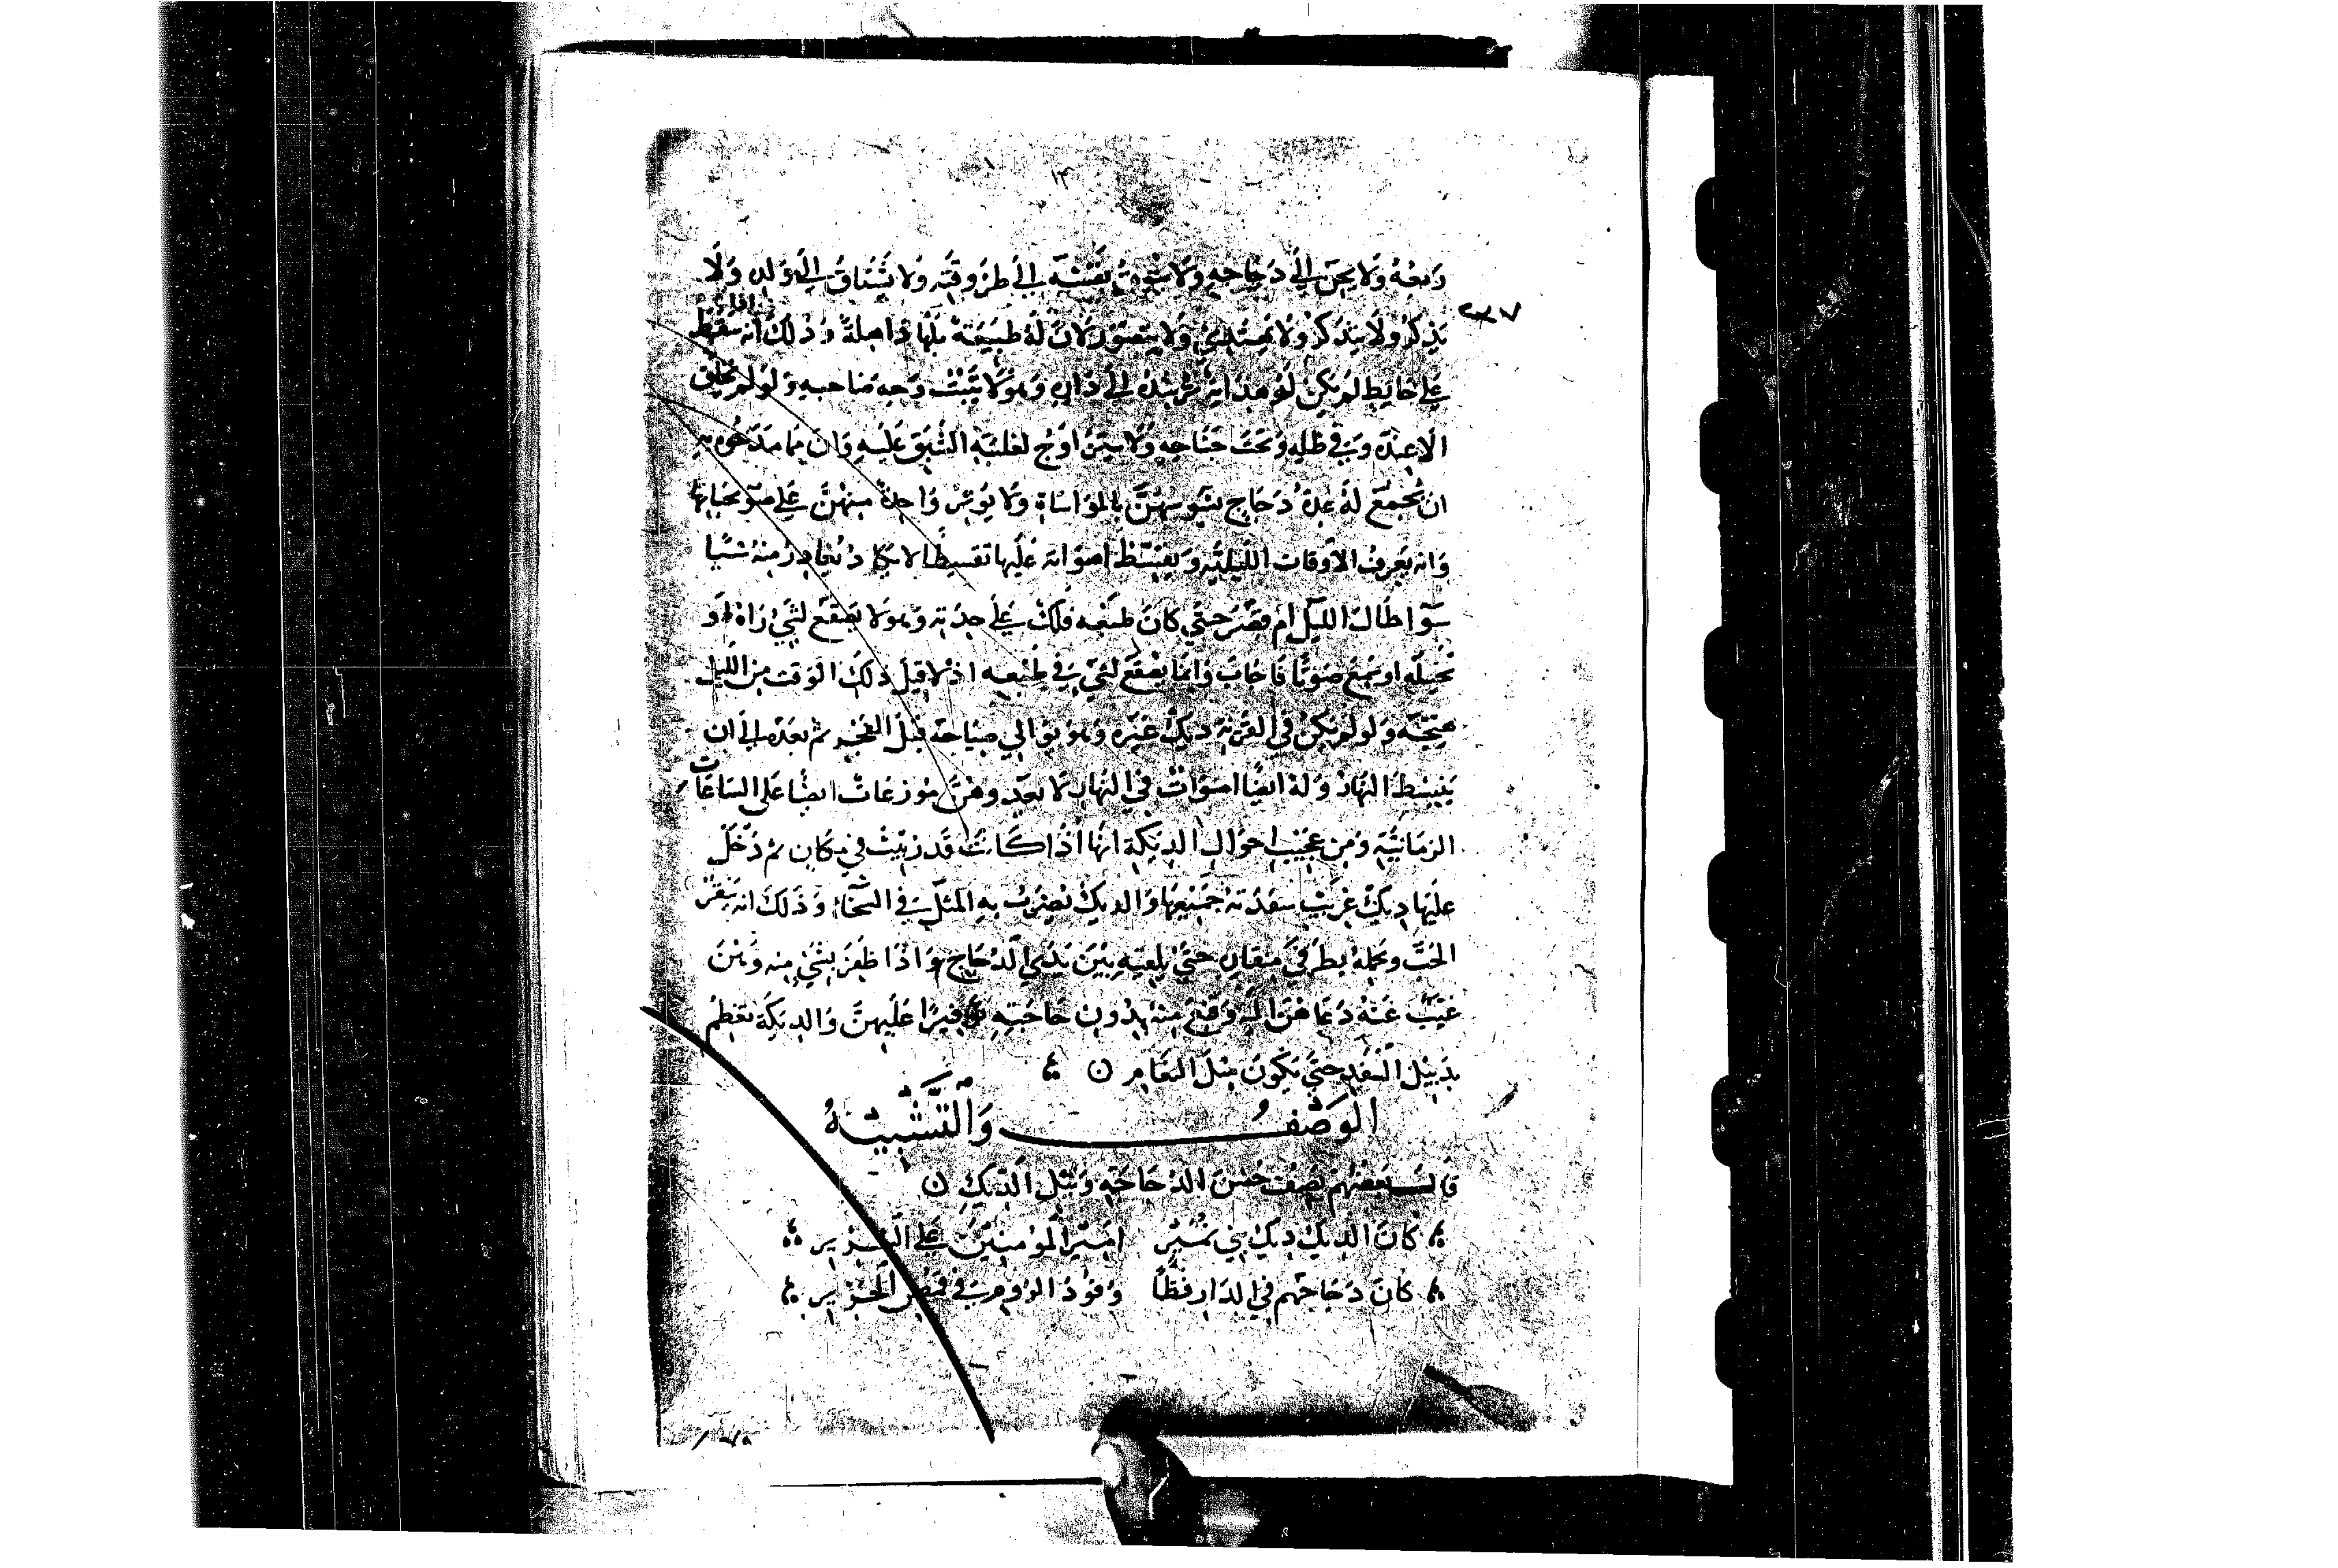 ربعه ولا يحن الي دجاجه ولا تتوق نفسه الي طروقته ولا يشتاق الي ولده ولا
يذكر ولا يتذكر ولا يهتدي ولا يتصور لان له طبيعة بلها ذاهلة وذلك انه اذا سقط
علي حايط لم يكن له هداية ترشده الي داره وهو لا يثبت وجه صاحبه ولو لم يخلق
الا عنده وفي ظله وتحت جناحه ولا يتزاوج لغلبة الشبق عليه وان مما مدحوه به
ان تجمع له عدة دجاج يسوسهن بالمواساة ولا يوثر واحدة منهن علي صويحباتها
وانه يعرف الاوقات الليلية ويقسط اصواته عليها تقسيطا لا يكاد يغادر منه شيا
سوا طال الليل ام قصر حتي كان طبعه فلك علي حدته وهو لا يصقع لشي راه او
تخيله او سمع صوتا فاجاب وانما يصقع لشي في طبعه اذ لاقي ذلك الوقت من الليل
هيجه ولو لم يكن في القرية ديك غيره وهو يوالي صياحه قبل الفجر ثم بعده الي ان
ينبسط النهار وله ايضا اصوات في النهار لا تعد وهن موزعات ايضا على الساعات
الزمانية ومن عجيب احوال الديكة انها اذا كانت قد ربيت في مكان ثم دخل
عليها ديك غريب سفدته جميعها والديك يضرب به المثل في السخاء وذلك انه ينقر
الحب ويحمله بطرفي منقاره حتي يلقيه بين يدي الدجاج واذا ظفر بشي منه وهن
غيب عنه دعاهن اليه وقنع منه بدون حاجته توفيرا عليهن والديكة تعظم
بدبيل السند حتي تكون مثل النعام
الوصف والتشبيه
قال بعضهم يصف حسن الدجاجة ونبل الديك
كان الديك ديك بني نمير امير المومنين علي السرير
كان دجاجهم في الدار رقطا وفود الروم في قمص الحرير